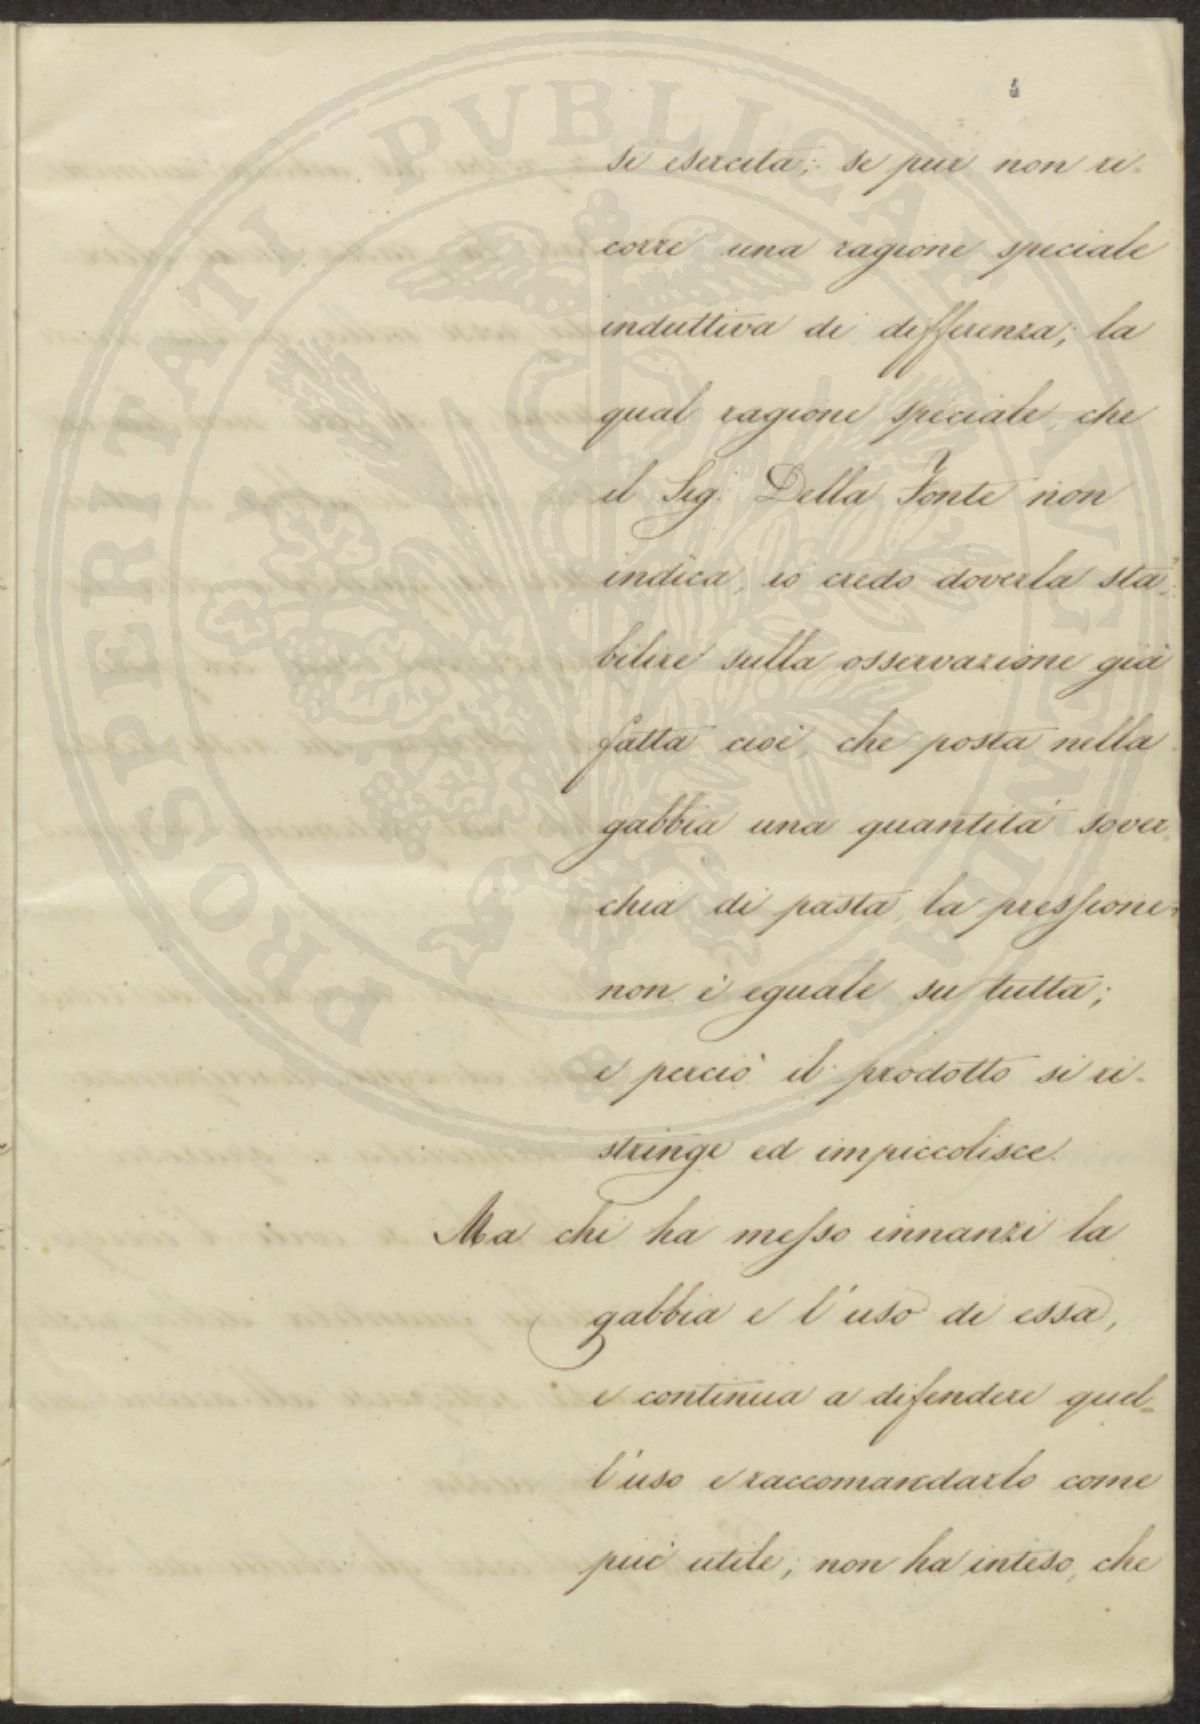 4
si esercita; se pur non ri-
corre una ragione speciale
induttiva di differenza; la
qual ragione speciale, che
il Sig. Della Fonte non
indica, io credo doverla sta-
bilire sulla osservazione già
fatta cioè, che posta nella
gabbia una quantità sover-
chia di pasta, la pressione
non è eguale su tutta;
e perciò il prodotto si re-
stringe ed impiccolisce.
Ma chi ha messo innanzi la
gabbia e l'uso di essa,
e continua a difendere quel-
l'uso e raccomandarlo come
più utile, non ha inteso, che
PROSPERITATI PVBLICAE AVGENDAE